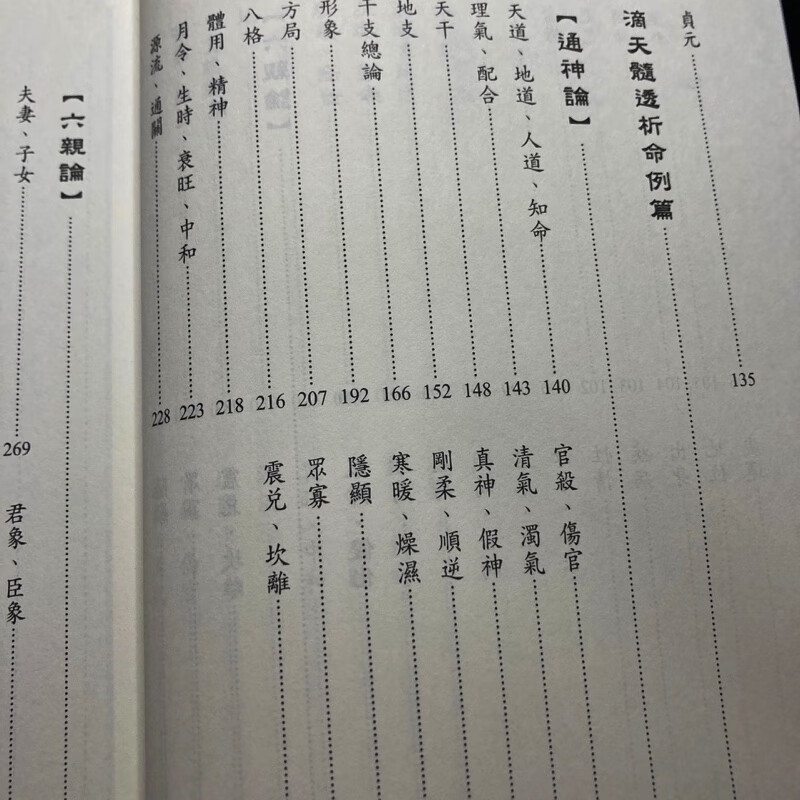 貞元 135
滴天髓透析命例篇
【通神論】
天道、地道、人道、知命 140
理氣、配合 143
天干 148
地支 152
干支總論 166
形象 192
方局 207
八格 216
體用、精神 218
月令、生時、衰旺、中和 223
源流、通關 228
官殺、傷官
清氣、濁氣
真神、假神
剛柔、順逆
寒暖、燥濕
隱顯
眾寡
震兌、坎離
【六親論】
夫妻、子女 269
君象、臣象